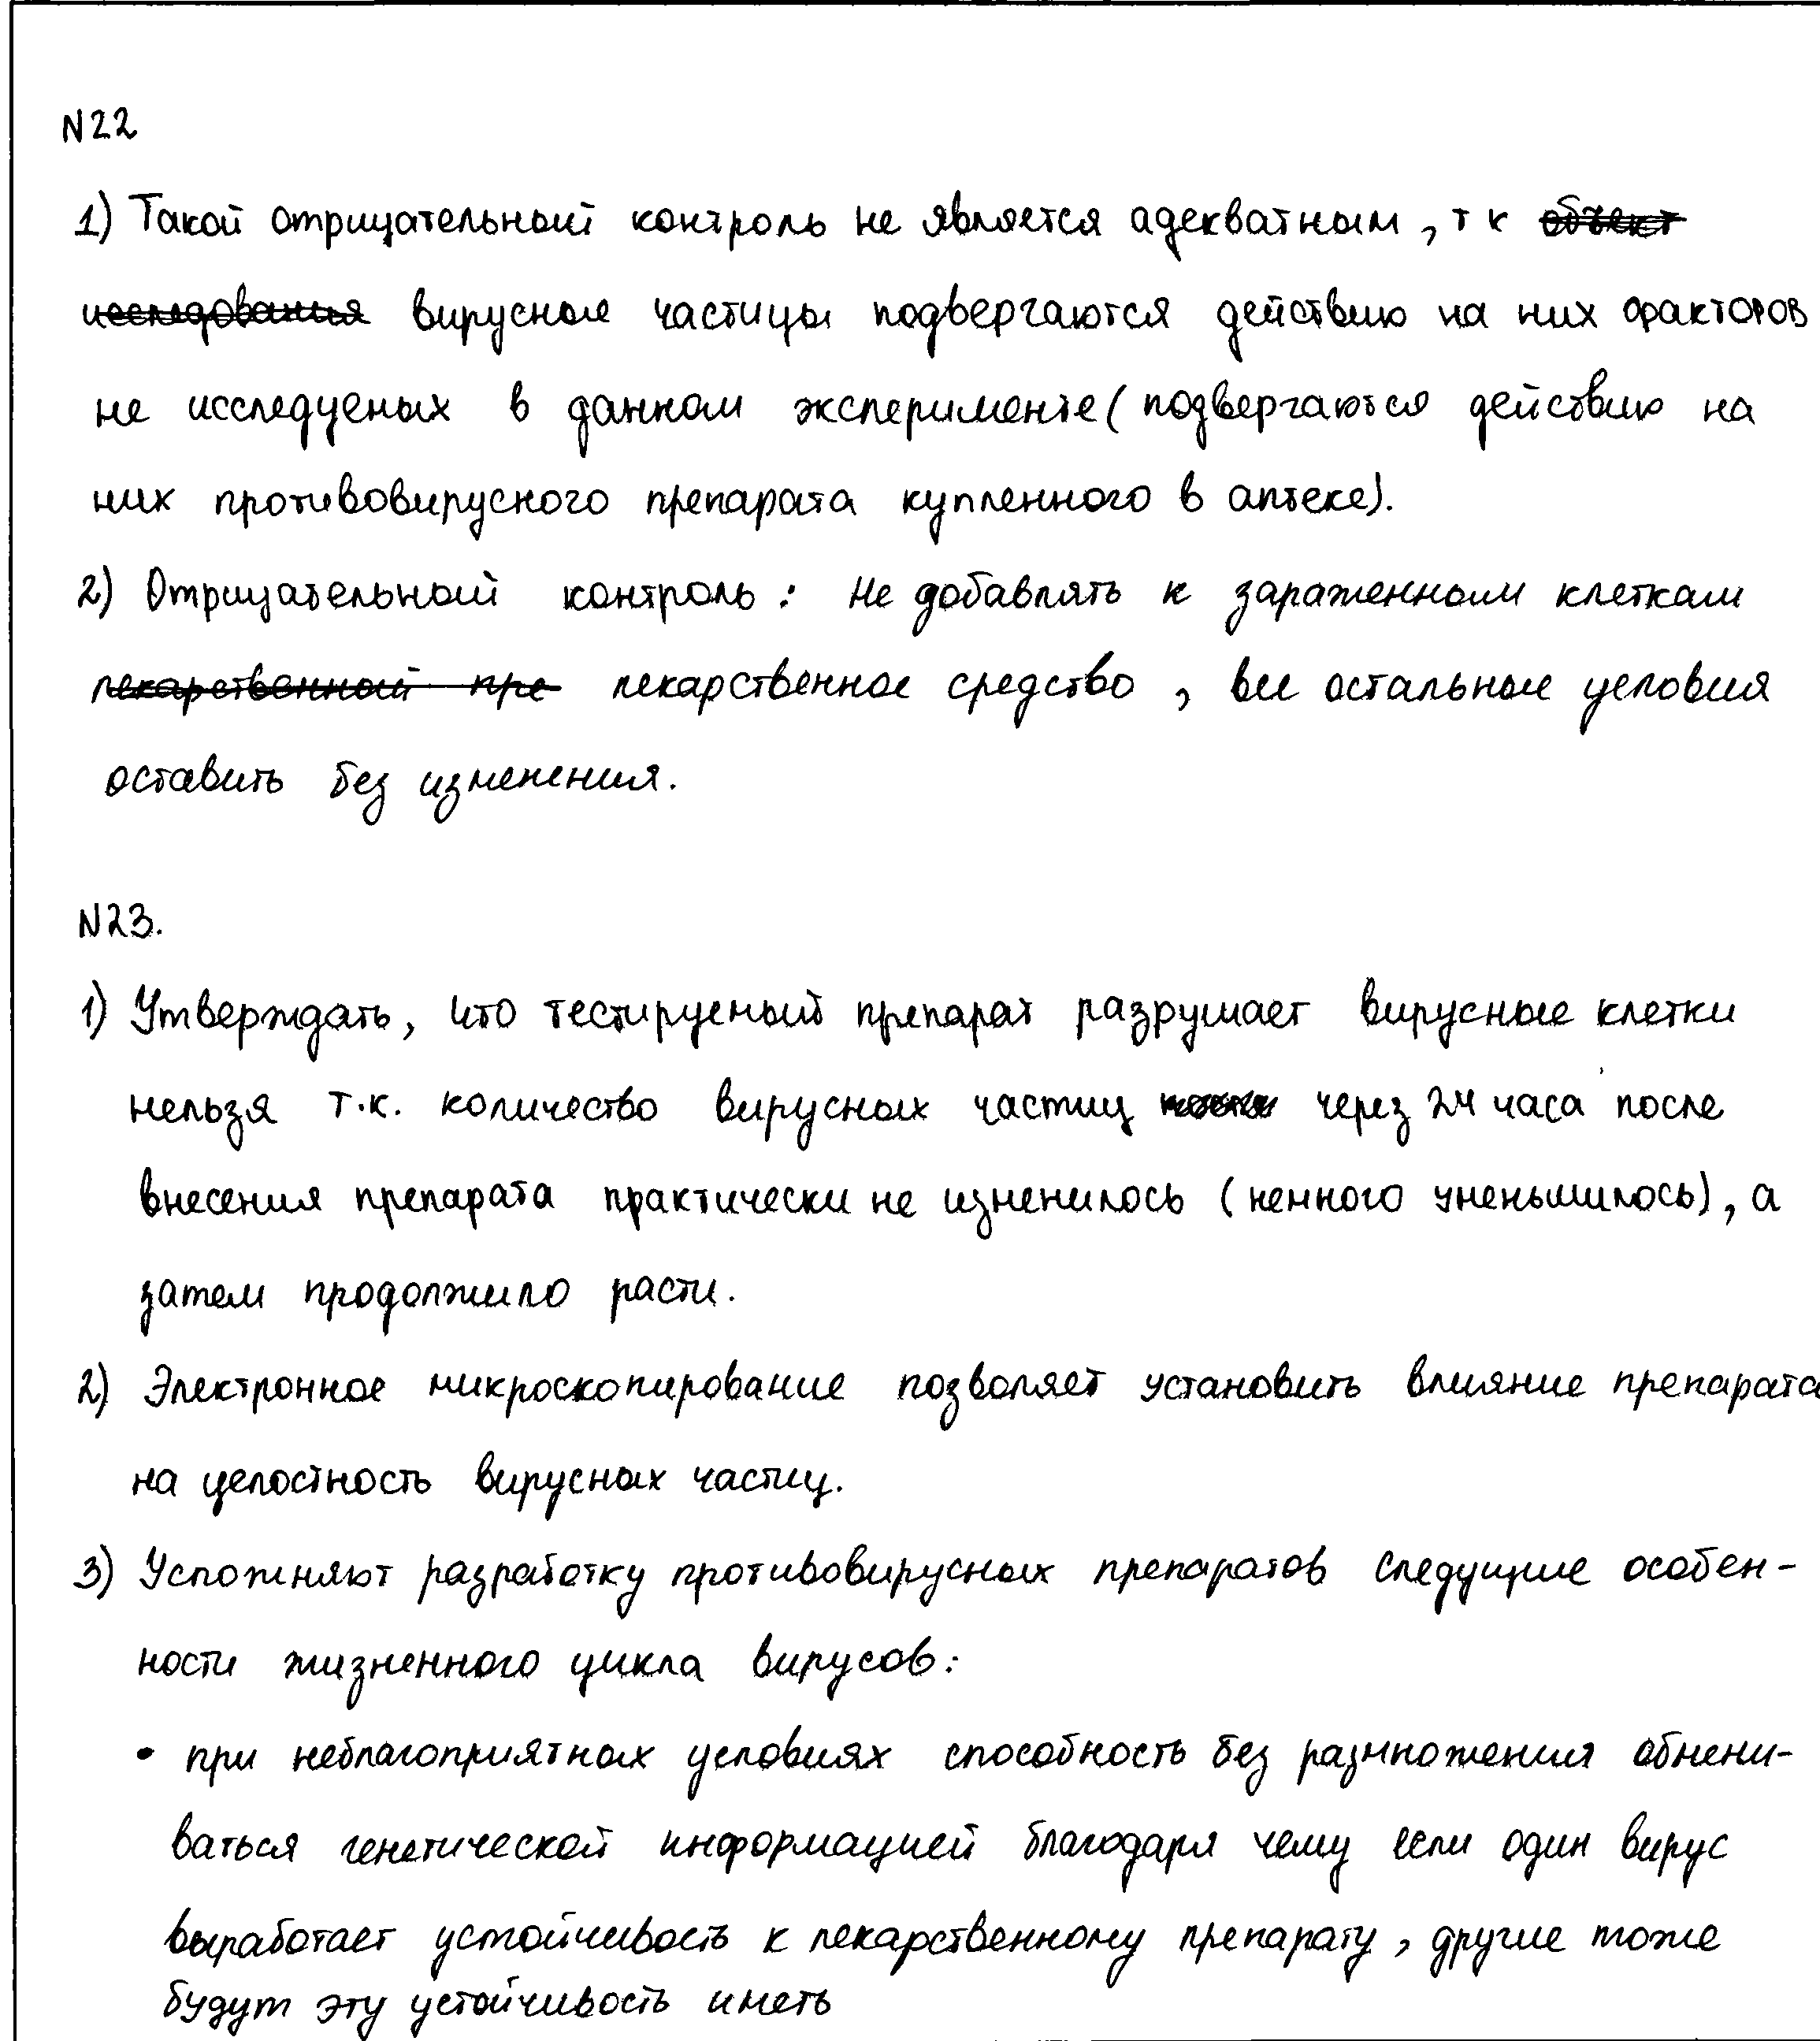 N22
1) Такой отрицательный контроль не является адекватным, т к объект
исследования вирусные частицы подвергаются действию на них факторов
не исследуемых в данном эксперименте (подвергаются действию на
них противовирусного препарата купленного в аптеке).
2) Отрицательный контроль: не добавлять к зараженным клеткам
лекарственный пре лекарственное средство, все остальные условия
оставить без изменения.
N23.
1) Утверждать, что тестируемый препарат разрушает вирусные клетки
нельзя т.к. количество вирусных частиц через 24 часа после
внесения препарата практически не изменилось (немного уменьшилось), а
затем продолжило расти.
2) Электронное микроскопирование позволяет установить влияние препарата
на целостность вирусных частиц.
3) Усложняют разработку противовирусных препаратов следущие особен-
ности жизненного цикла вирусов:
• при неблагоприятных условиях способность без размножения обмени-
ваться генетической информацией благодаря чему если один вирус
выработает устойчивость к лекарственному препарату, другие тоже
будут эту устойчивость иметь